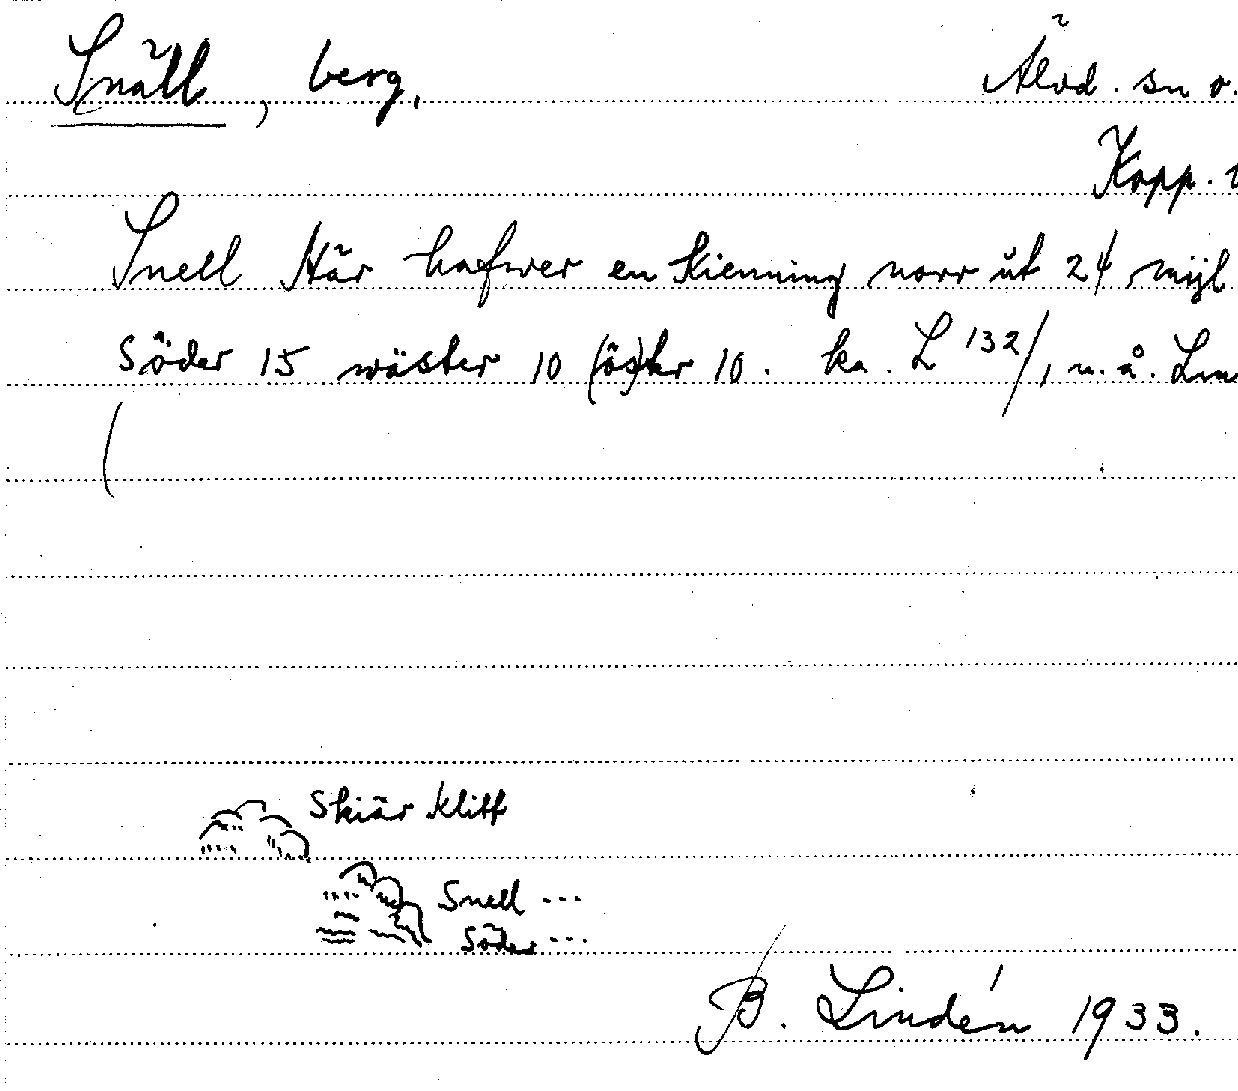 Snäll, berg, Älvd. sn o.
Kopp.
Snell Här hafwer en kienning norr ut 24 mijl
söder 15 wäster 10 (ös)ter 10. ka. L 132/1, u.å. Lm
(
Skiär klitt
Snell ---
Söder ---
B. Lindén 1933.